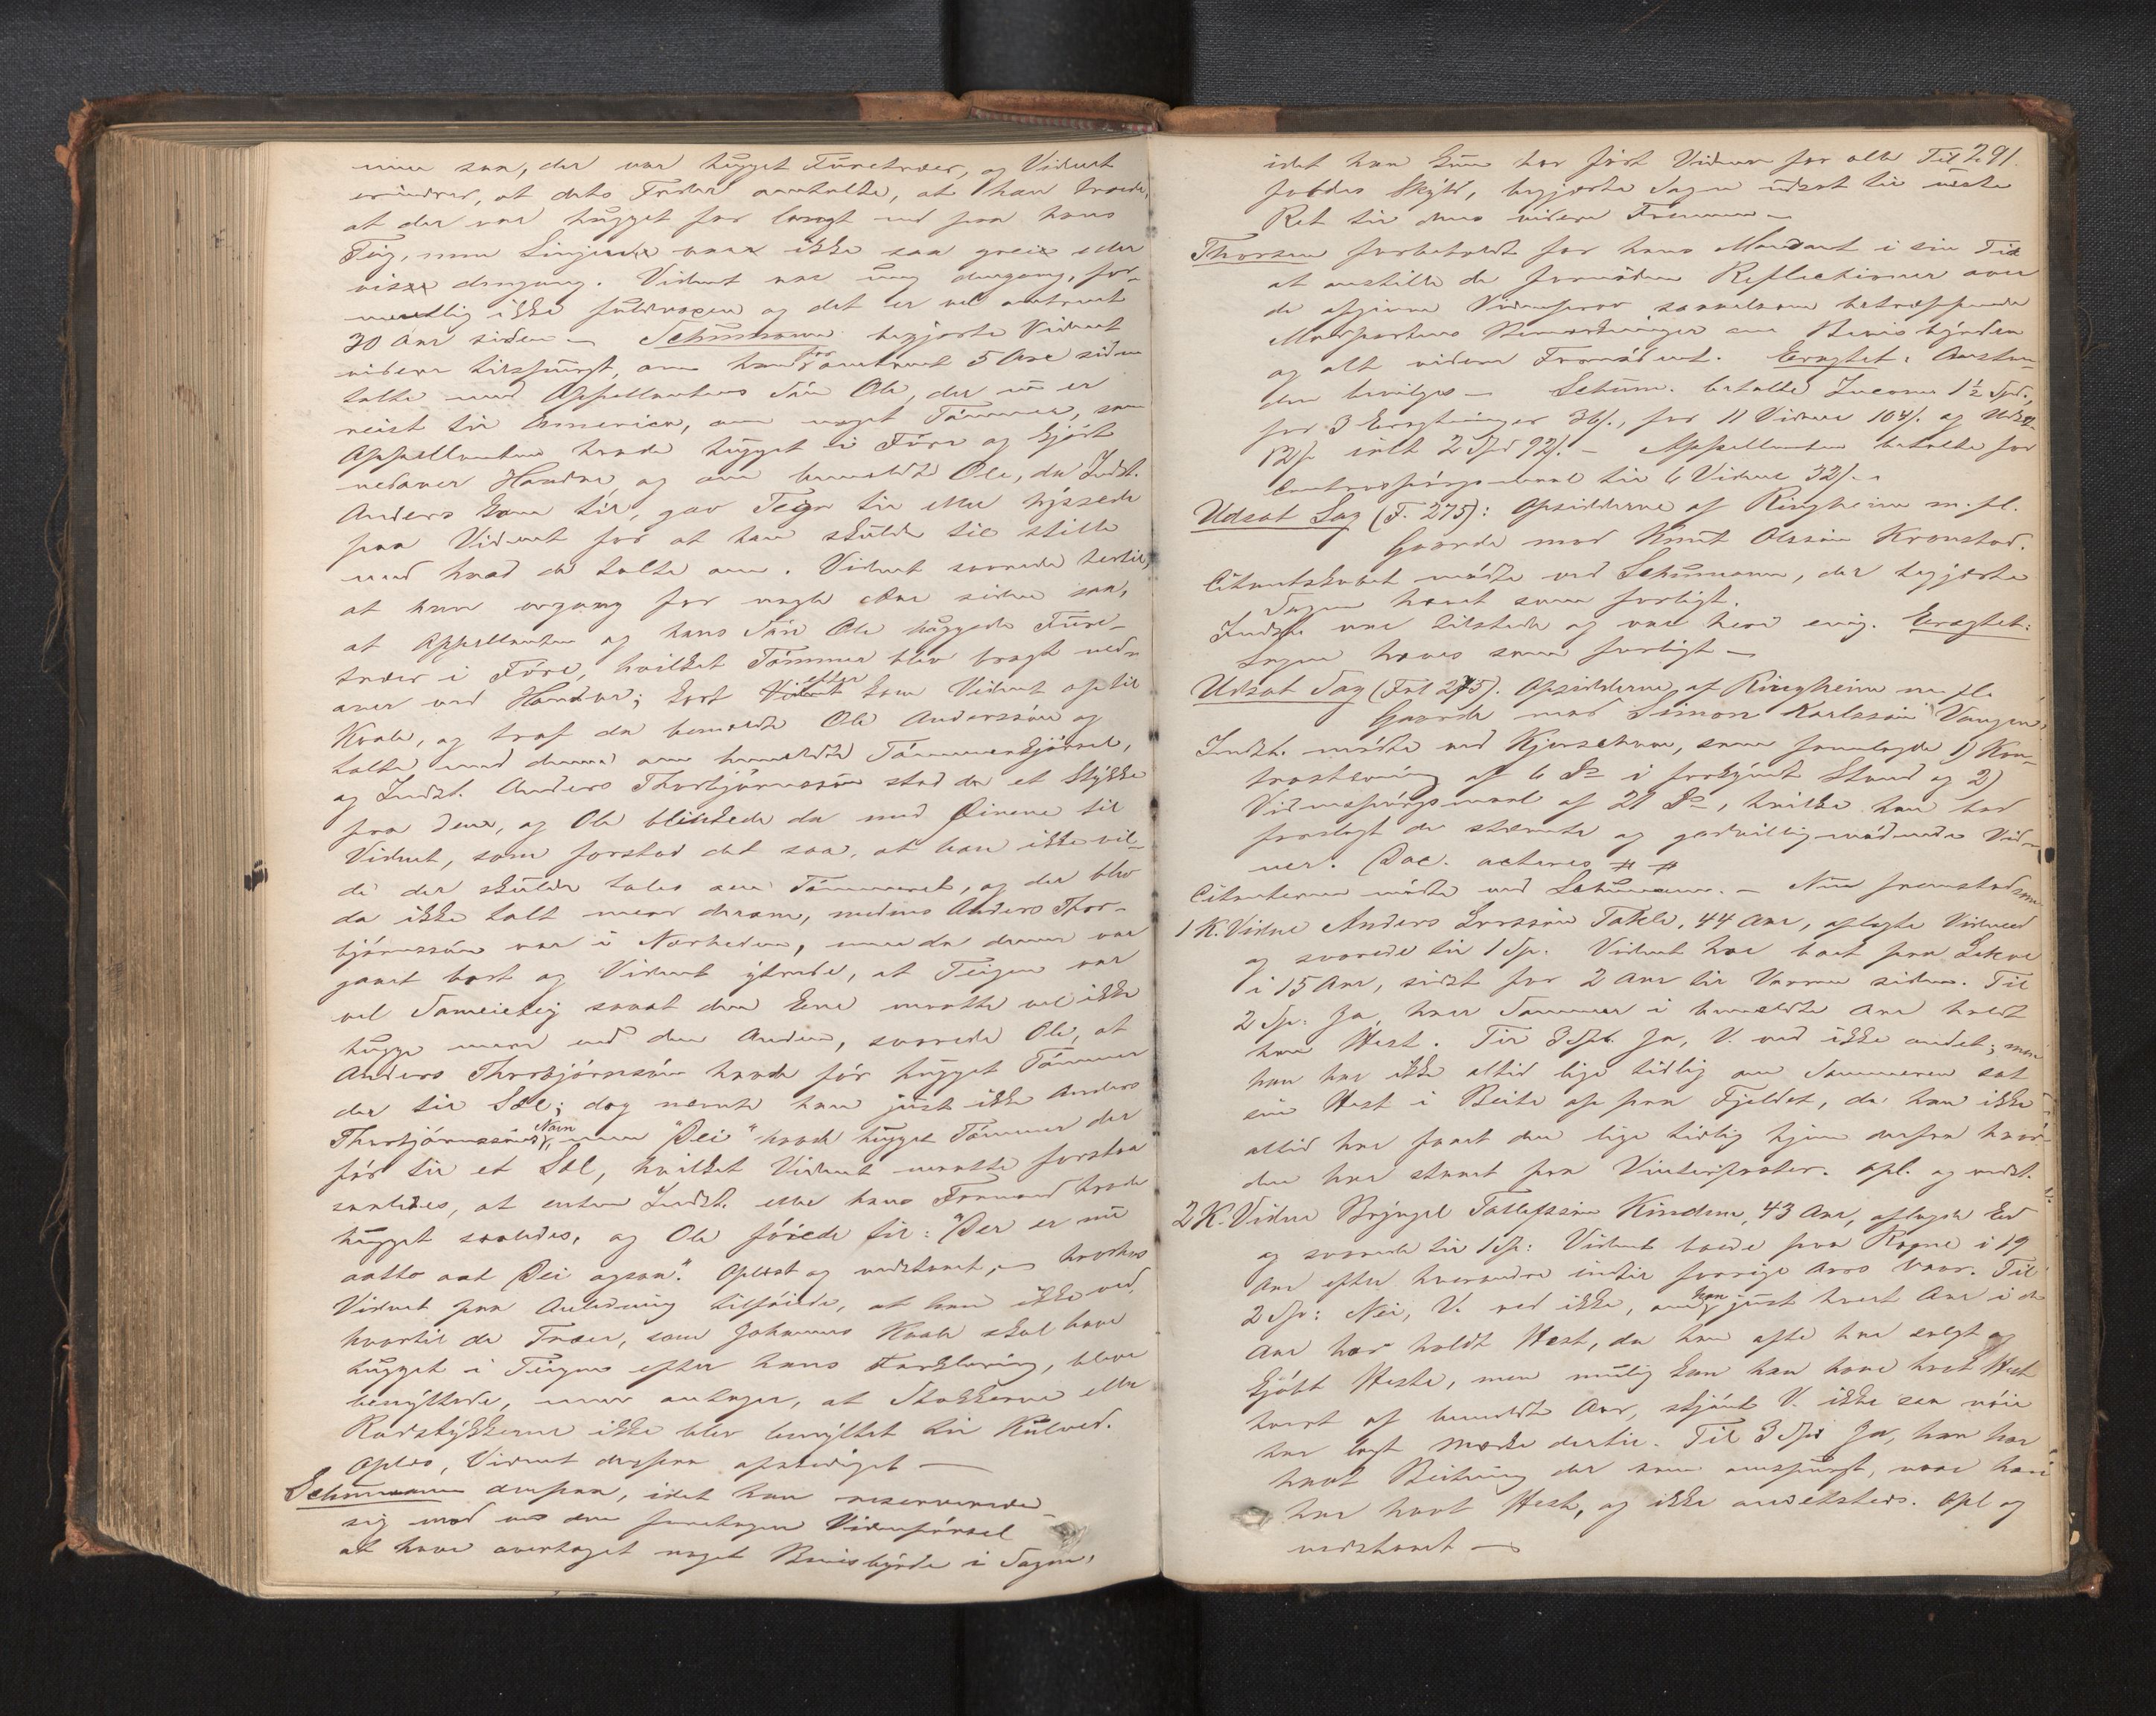 saa, der var hugget Furetræer, og Vidnet
erindrer, at dets Fader omtalte, at han troede,
at der var hugget for langt ud paa hans
Teig, men Linjerne var ikke saa greie eller
visse dengang. Vidnet var ung dengang, for-
mentlig ikke fuldvoxen og det er vel omtrent
30 Aar siden – Schumann begjærte Vidnet
videre tilspurgt, om han for omtrent 5 Aar siden
talte med Appellantens Søn Ole, der nu er
reist til America, om noget Tømmer, som
Appellanten havde hugget i Fure og kjørt
nedover Haadne, og om bemeldte Ole, da Indst.
Anders kom til, gav Tegn til eller hyssede
paa Vidnet for at han skulde tie stille
med hvad de talte om. Vidnet svarede hertil,
at han engang for nogle Aar siden saa,
at Appellanten og hans Søn Ole huggede Fure-
træer i Fure, hvilket Tømmer blev bragt ned-
over ved; kort efter kom Vidnet op til
Kvale, og traf da bemeldte Ole Anderssøn og
talte med denne om bemeldte Tømmerkjørsel,
og Indst. Anders Thorbjørnssøn stod da et Stykke
fra dem, og Ole blinkede da med Øinene til
Vidnet, som forstod det saa, at han ikke vil-
de der skulde tales om Tømmeret, og der blev
da ikke talt mere derom, medens Anders Thor-
bjørnssøn var i Nærheden, men da denne var
gaaet bort og Vidnet ytrede, at Teigen var
vel Sameieteig saaat den Ene maatte vel ikke
hugge mere end den Anden, svarede Ole, at
Anders Thorbjørnssøn havde før hugget Tømmer
der til Sæl; dog nævnte han just ikke Anders
Thorbjørnssøns Navn, men "Dei" havde hugget Tømmer der
før til et Sæl, hvilket Vidnet maatte forstaa
saaledes, at enten Indst. eller hans Formand havde
hugget saaledes, og Ole føiede til: "Der er nu
aatto aat Dei ogsaa". Oplæst og vedtaget, hvorhos
Vidnet paa Anledning tilføiede, at han ikke ved,
hvortil de Træer, som Johannes Kvale skal have
hugget i Teigen efter hans Forklaring, bleve
benyttede, men antager, at Stokkerne eller
Rodstykkerne ikke blev benyttet til Kulved.
Opldes, Vidnet derpaa afskediget –
Schumann derpaa, idet han reserverede
sig mod ved den foretagne Vidneførsel
at have overtaget noget Bevisbyrde i Sagen,
idet han kun har ført Vidner for alle Til 291.
Skyld, begjærte Sagen udsat til næste
Ret til dens videre Fremme –
Thorsen forbeholdt for hans Mandant i sin Tid
at anstille de fornødne Reflectioner over
de afgivne Vidneprov saavelsom betræffende
Modpartens Bemærkninger om Bevisbyrden
og alt videre Fornødent. Eragtet: Anstan-
den bevilges – Schum. betalte Incam. 1½ Spd.,
for 3 Eragtninger 36/., for 11 Vidner 104/. og Uds.
12/. ialt 2 Spd 92/. – Appellanten betalte for
Contraspørgsmaal til 6 Vidner 32/.
Udsat Sag (F. 275): Opsidderne af Ringheim m. fl.
Gaarde mod Knut Olssøn Kronstad.
Citantskabet mødte ved Schumann, der begjærte
Sagen hævet som forligt.
Indst. var tilstede og var heri enig. Eragtet:
Sagen hæves som forligt –
Udsat Sag (Fol 275). Opsidderne af Ringheim m fl.
Gaarde mod Simon Karlssøn Vangen,
Indst. mødte ved Kjerschow, som fremlagde 1) Kon-
trastevning af 6 Ds i forkyndt Stand og 2)
Vidnespørgsmaal af 21 Ds, hvilke han bad
forelagt de stævnte og godvillig mødende Vid-
ner. Doc. acteres # #
Citanterne mødte ved Schumann. – Nu fremstod som
1 K. Vidne Anders Larssøn Takle, 44 Aar, aflagte Vidneed
og svarede til 1 Sp. Vidnet har boet paa Lekve
i 15 Aar, sidst for 2 Aar til Vaaren siden. Til
2 Sp. Ja, hver Sommer i bemeldte Aar holdt
han Hest. Til 3 Sp. Ja, V. ved ikke andet; men
han har ikke altid lige tidlig om Sommeren sat
sin Hest i Beite op paa Fjeldet, da han ikke
altid har faaet den lige tidlig hjem derfra hvor
den har staaet paa Vinterfoster. Opl. og vedst.
2 K. Vidne Brynjel Tollefssøn Kinden, 43 Aar, aflagde Ed
og svarede til 1 Sp: Vidnet boede paa Rogne i 19
Aar efter hverandre indtil forrige Aars Vaar. Til
2 Sp: Nei, V. ved ikke, om han just hvert Aar i de
Aar har holdt Hest, da han ofte har solgt og
kjøbt Heste, men mulig kan han have havt Hest
hvert af bemeldte Aar, skjønt V. ikke saa nøie
har lagt Mærke dertil. Til 3 Sp: Ja, han har
havt Beitning der som omspurgt, naar han
har havt Hest, og ikke andetsteds. Opl og
vedtaget –